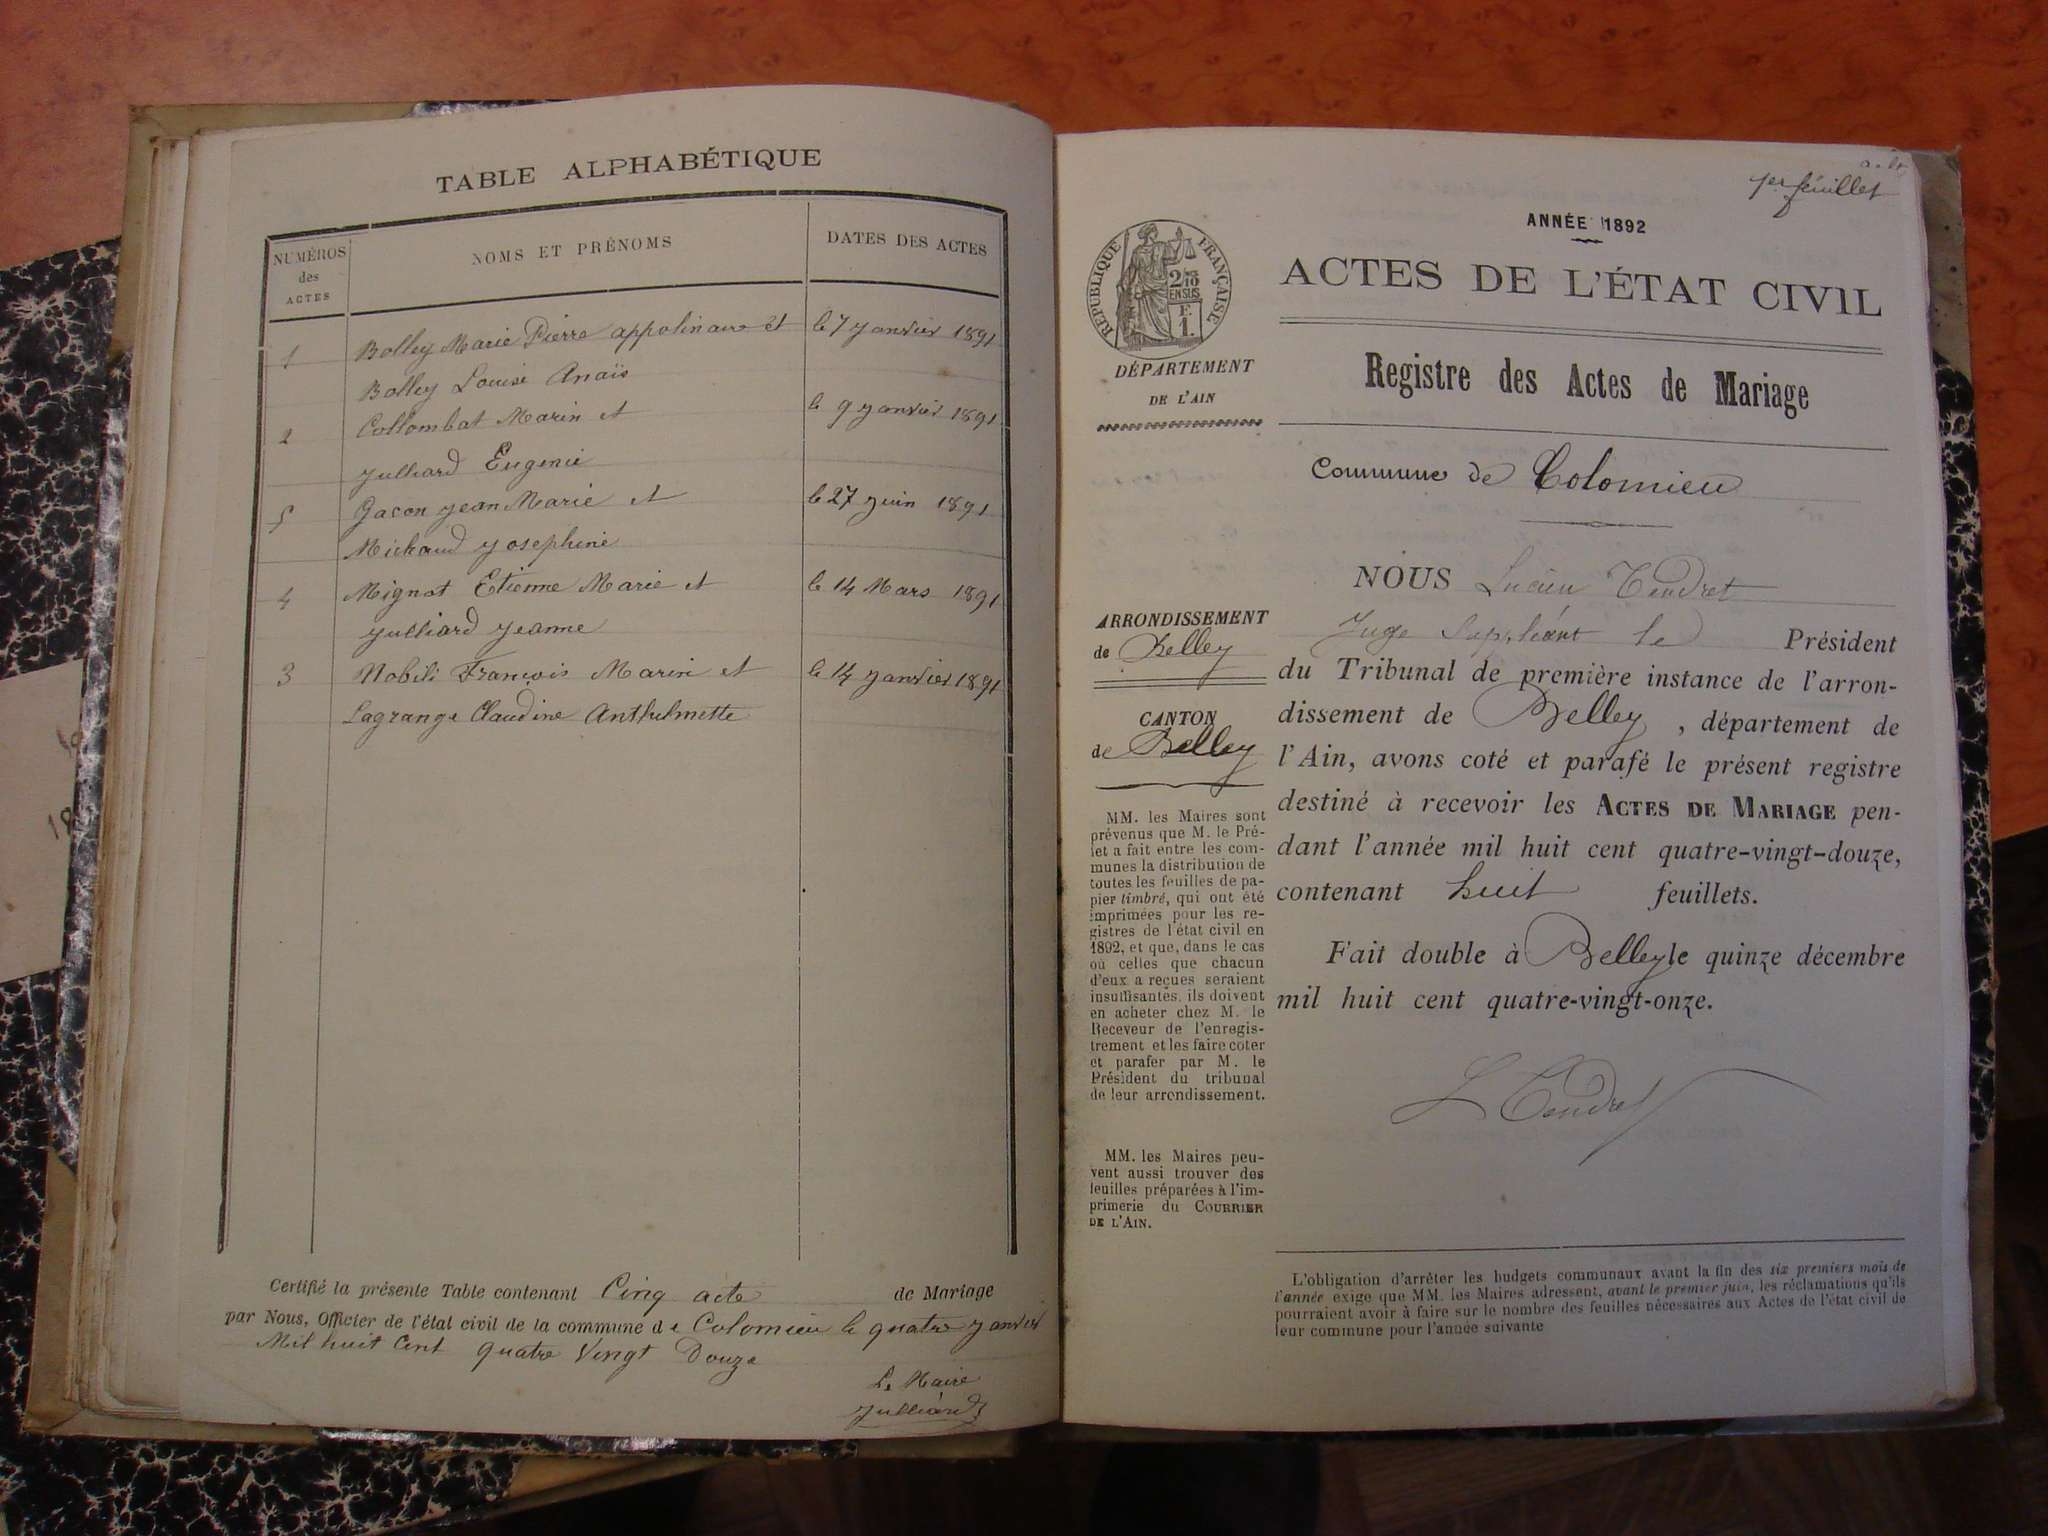 TABLE ALPHABÉTIQUE
NUMÉROS
des
ACTES
NOMS ET PRÉNOMS
DATES DES ACTES
1 Bolley Marie Pierre appolinaire et le 7 janvier 1891
Bolley Louise Anaïs
2 Collombat Marin et le 9 janvier 1891
Julliard Eugenie
5 Gacon jean Marie et le 27 juin 1891
Michaud josephine
4 Mignot Etienne Marie et le 14 Mars 1891
Julliard jeanne
3 Nobili François Marin et le 14 janvier 1891
Lagrange Claudine Anthelmette
Certifié la présente Table contenant Cinq acte de Mariage
par Nous, Officier de l'état civil de la commune de Colomieu le quatre janvier
Mil huit Cent quatre Vingt Douze
Le Maire
Julliard
1er feuillet
ANNÉE 1892
RÉPUBLIQUE FRANÇAISE
2/10
EN SUS
F.
1.
ACTES DE L'ÉTAT CIVIL
DÉPARTEMENT
DE L'AIN
Registre des Actes de Mariage
Commune de Colomieu
NOUS Lucien Tendret
Juge Suppléant le Président
du Tribunal de première instance de l'arron-
dissement de Belley, département de
l'Ain, avons coté et parafé le présent registre
destiné à recevoir les ACTES DE MARIAGE pen-
dant l'année mil huit cent quatre-vingt-douze,
contenant huit feuillets.
Fait double à Belley le quinze décembre
mil huit cent quatre-vingt-onze.
L Tendret
ARRONDISSEMENT
de Belley
CANTON
de Belley
MM. les Maires sont
prévenus que M. le Pré-
fet a fait entre les com-
munes la distribution de
toutes les feuilles de pa-
pier timbré, qui ont été
imprimées pour les re-
gistres de l'état civil en
1892, et que, dans le cas
où celles que chacun
d'eux a reçues seraient
insuffisantes, ils doivent
en acheter chez M. le
Receveur de l'enregis-
trement et les faire coter
et parafer par M. le
Président du tribunal
de leur arrondissement.
MM. les Maires peu-
vent aussi trouver des
feuilles préparées à l'im-
primerie du COURRIER
DE L'AIN.
L'obligation d'arrêter les budgets communaux avant la fin des six premiers mois de
l'année exige que MM. les Maires adressent, avant le premier juin, les réclamations qu'ils
pourraient avoir à faire sur le nombre des feuilles nécessaires aux Actes de l'état civil de
leur commune pour l'année suivante